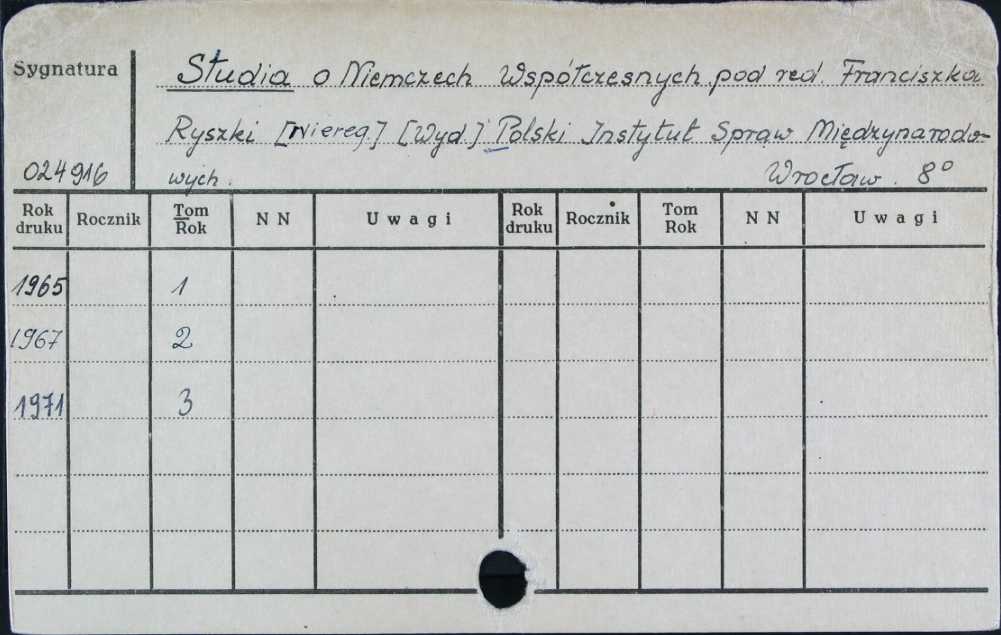 Sygnatura
Studia o Niemczech Współczesnych pod red. Franciszka
Ryszki [Niereg.] [Wyd.] Polski Instytut Spraw Międzynarodo-
024916 wych. Wrocław. 8°
Rok druku Rocznik Tom Rok NN Uwagi Rok druku Rocznik Tom Rok NN Uwagi
1965 1
1967 2
1971 3